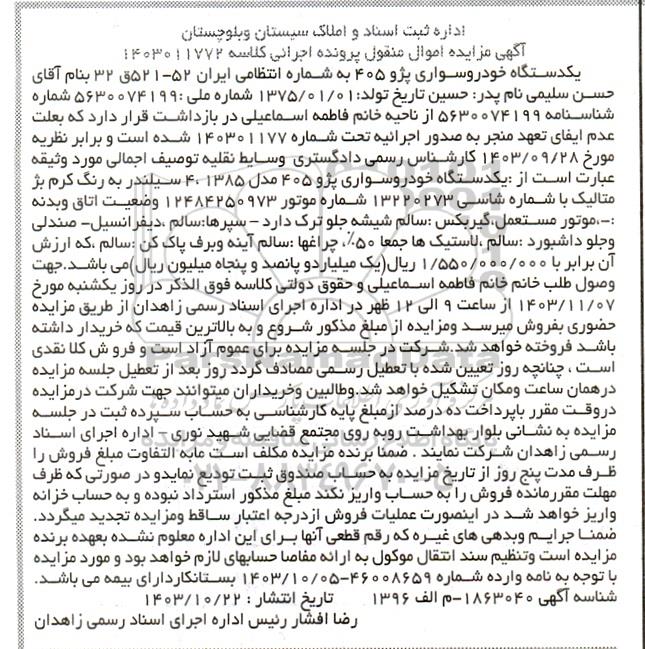 اداره ثبت اسناد و املاک سیستان وبلوچستان
آگهی مزایده اموال منقول پرونده اجرائی کلاسه ۱۴۰۳۰۱۱۷۷۲
یکدستگاه خودروسواری پژو ۴۰۵ به شماره انتظامی ایران ۵۲-۵۲۱ق ۳۲ بنام آقای
حسن سلیمی نام پدر: حسین تاریخ تولد:۱۳۷۵/۰۱/۰۱ شماره ملی :۵۶۳۰۰۷۴۱۹۹ شماره
شناسنامه ۵۶۳۰۰۷۴۱۹۹ از ناحیه خانم فاطمه اسماعیلی در بازداشت قرار دارد که بعلت
عدم ایفای تعهد منجر به صدور اجرائیه تحت شماره ۱۴۰۳۰۱۱۷۷ شده است و برابر نظریه
مورخ ۱۴۰۳/۰۹/۲۸ کارشناس رسمی دادگستری وسایط نقلیه توصیف اجمالی مورد وثیقه
عبارت است از :یکدستگاه خودروسواری پژو ۴۰۵ مدل ۱۳۸۵ ،۴ سیلندر به رنگ کرم بژ
متالیک با شماره شاسی ۱۳۲۲۰۲۷۳ شماره موتور ۱۲۴۸۴۲۵۰۹۷۳ وضعیت اتاق وبدنه
:-،موتور مستعمل،گیربکس :سالم شیشه جلو ترک دارد – سپرها:سالم ،دیفرانسیل- صندلی
وجلو داشبورد :سالم ،لاستیک ها جمعا ۵۰٪، چراغها :سالم آینه وبرف پاک کن :سالم ،که ارزش
آن برابر با ۱/۵۵۰/۰۰۰/۰۰۰ ریال(یک میلیاردو پانصد و پنجاه میلیون ریال)می باشد.جهت
وصول طلب خانم خانم فاطمه اسماعیلی و حقوق دولتی کلاسه فوق الذکر در روز یکشنبه مورخ
۱۴۰۳/۱۱/۰۷ از ساعت ۹ الی ۱۲ ظهر در اداره اجرای اسناد رسمی زاهدان از طریق مزایده
حضوری بفروش میرسد ومزایده از مبلغ مذکور شروع و به بالاترین قیمت که خریدار داشته
باشد فروخته خواهد شد.شرکت در جلسه مزایده برای عموم آزاد است و فرو ش کلا نقدی
است ، چنانچه روز تعیین شده با تعطیل رسمی مصادف گردد روز بعد از تعطیل جلسه مزایده
درهمان ساعت ومکان تشکیل خواهد شد.وطالبین وخریداران میتوانند جهت شرکت درمزایده
دروقت مقرر باپرداخت ده درصد ازمبلغ پایه کارشناسی به حساب سپرده ثبت در جلسه
مزایده به نشانی بلوار بهداشت روبه روی مجتمع قضایی شهید نوری – اداره اجرای اسناد
رسمی زاهدان شرکت نمایند . ضمنا برنده مزایده مکلف است مابه التفاوت مبلغ فروش را
ظرف مدت پنج روز از تاریخ مزایده به حساب صندوق ثبت تودیع نمایدو در صورتی که ظرف
مهلت مقررمانده فروش را به حساب واریز نکند مبلغ مذکور استرداد نبوده و به حساب خزانه
واریز خواهد شد در اینصورت عملیات فروش ازدرجه اعتبار ساقط ومزایده تجدید میگردد.
ضمنا جرایم وبدهی های غیره که رقم قطعی آنها برای این اداره معلوم نشده بعهده برنده
مزایده است وتنظیم سند انتقال موکول به ارائه مفاصا حسابهای لازم خواهد بود و مورد مزایده
با توجه به نامه وارده شماره ۴۶۰۰۸۶۵۹-۱۴۰۳/۱۰/۰۵ بستانکاردارای بیمه می باشد.
شناسه آگهی ۱۸۶۳۰۴۰-م الف ۱۳۹۶ تاریخ انتشار : ۱۴۰۳/۱۰/۲۲
رضا افشار رئیس اداره اجرای اسناد رسمی زاهدان
ParsNamadData
۰۲۱-۸۸۳۴۹۶۷۰-۵